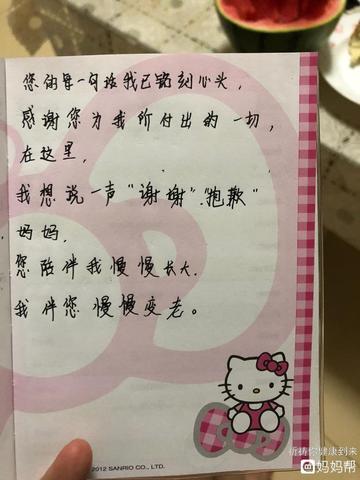 您的每一句话我已铭刻心头，
感谢您为我所付出的一切，
在这里，
我想说一声“谢谢”“抱歉”
妈妈，
您陪伴我慢慢长大.
我伴您慢慢变老。
©2012 SANRIO CO., LTD.
祈祷你健康到来
妈妈帮